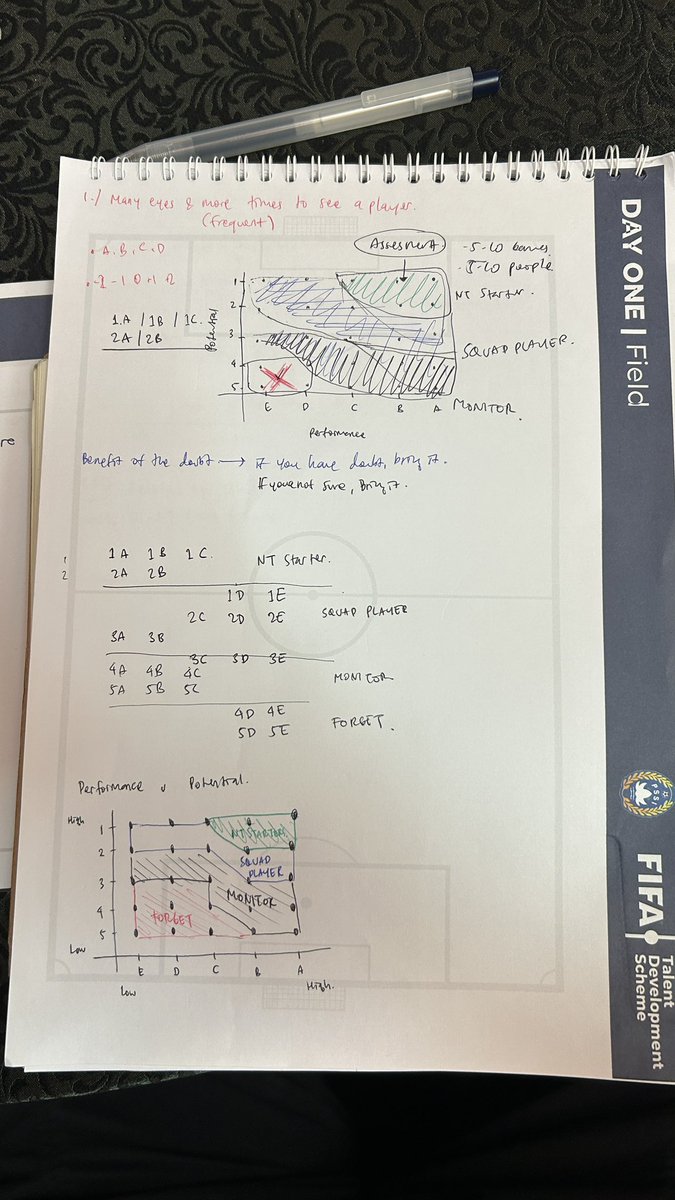 1./ Many eyes & more times to see a player.
(frequent)
• A, B, C, D
• -2 -1 0 +1 +2
1A / 1B / 1C.
2A / 2B
Assesment
- 5-10 games
- 5-10 people
NT Starter.
SQUAD PLAYER.
MONITOR.
Potential
1
2
3
4
5
E D C B A
Performance
Benefit of the doubt → if you have doubt, bring it.
If you are not sure, Bring it.
1
2
1A 1B 1C. NT Starter.
2A 2B
1D 1E
2C 2D 2E SQUAD PLAYER
3A 3B
3C 3D 3E
4A 4B 4C MONITOR
5A 5B 5C
4D 4E
5D 5E FORGET.
Performance v Potential.
High
1
2
3
4
5
Low
NT STARTER
SQUAD
PLAYER
MONITOR
FORGET
E D C B A
Low High.
DAY ONE | Field
PSSI
FIFA
Talent
Development
Scheme
re